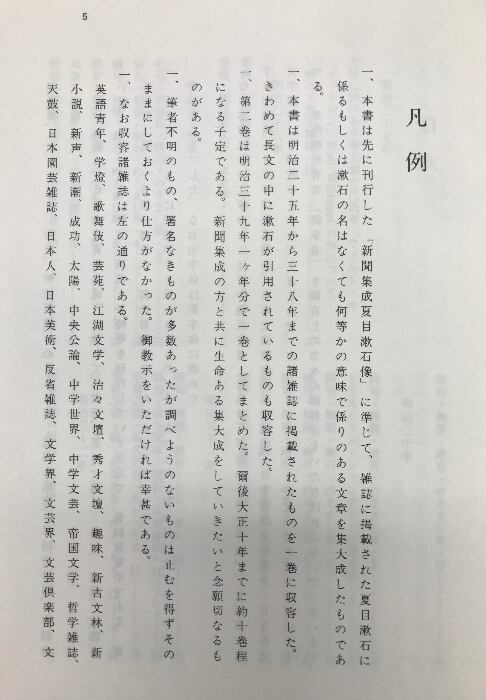 5
凡例
一、本書は先に刊行した「新聞集成夏目漱石像」に準じて、雑誌に掲載された夏目漱石に
係るもしくは漱石の名はなくても何等かの意味で係りのある文章を集大成したものであ
る。
一、本書は明治二十五年から三十八年までの諸雑誌に掲載されたものを一巻に収容した。
きわめて長文の中に漱石が引用されているものも収容した。
一、第二巻は明治三十九年一ヶ年分で一巻としてまとめた。爾後大正十年までに約十巻程
になる予定である。新聞集成の方と共に生命ある集大成をしていきたいと念願切なるも
のがある。
一、筆者不明のもの、署名なきものが多数あったが調べようのないものは止むを得ずその
ままにしておくより仕方がなかった。御教示をいただければ幸甚である。
一、なお収容諸雑誌は左の通りである。
英語青年、学燈、歌舞伎、芸苑、江湖文学、治々文壇、秀才文壇、趣味、新古文林、新
小説、新声、新潮、成功、太陽、中央公論、中学世界、中学文芸、帝国文学、哲学雑誌、
天鼓、日本園芸雑誌、日本人、日本美術、反省雑誌、文学界、文芸界、文芸倶楽部、文